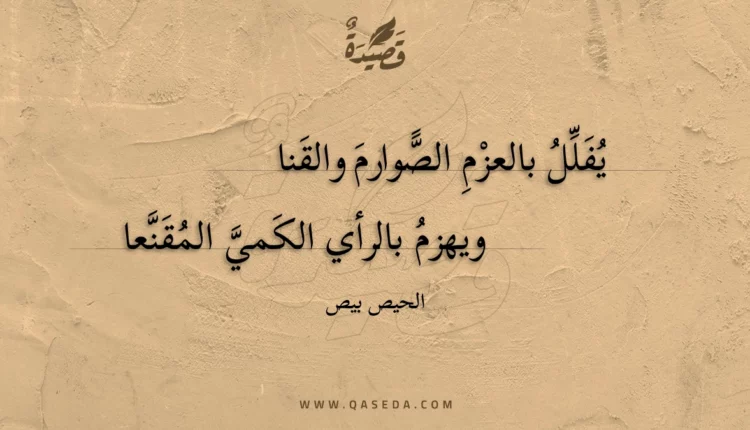 قَصِيدَةٌ
يُفَلِّلُ بالعزْمِ الصًّوارمَ والقَنا
ويهزمُ بالرأي الكَميَّ المُقَنَّعا
الحيص بيص
WWW.QASEDA.COM